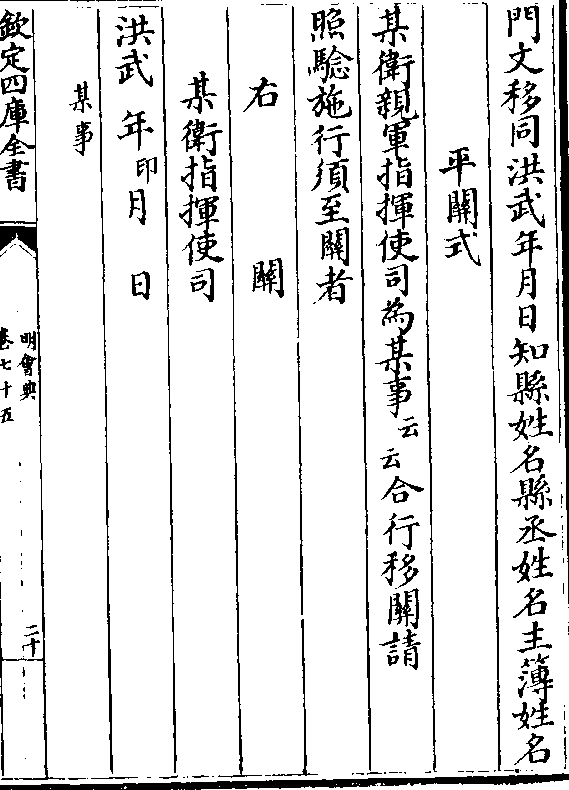 門文移同洪武年月日知縣姓名縣丞姓名主簿姓名
平關式
某衛親軍指揮使司為某事云云合行移關請
照驗施行須至關者
右關
某衛指揮使司
洪武年印月日
某事
欽定四庫全書
明會典
卷七十五
二十